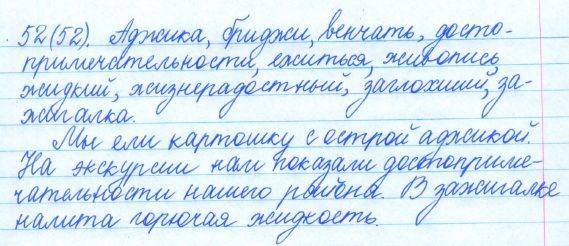 52(52). Аджика, бриджи, венчать, досто-
примечательности, ежиться, живопись,
жидкий, жизнерадостный, заглохший, за-
жигалка.
Мы ели картошку с острой аджикой.
На экскурсии нам показали достоприме-
чательности нашего района. В зажигалке
налита горючая жидкость.